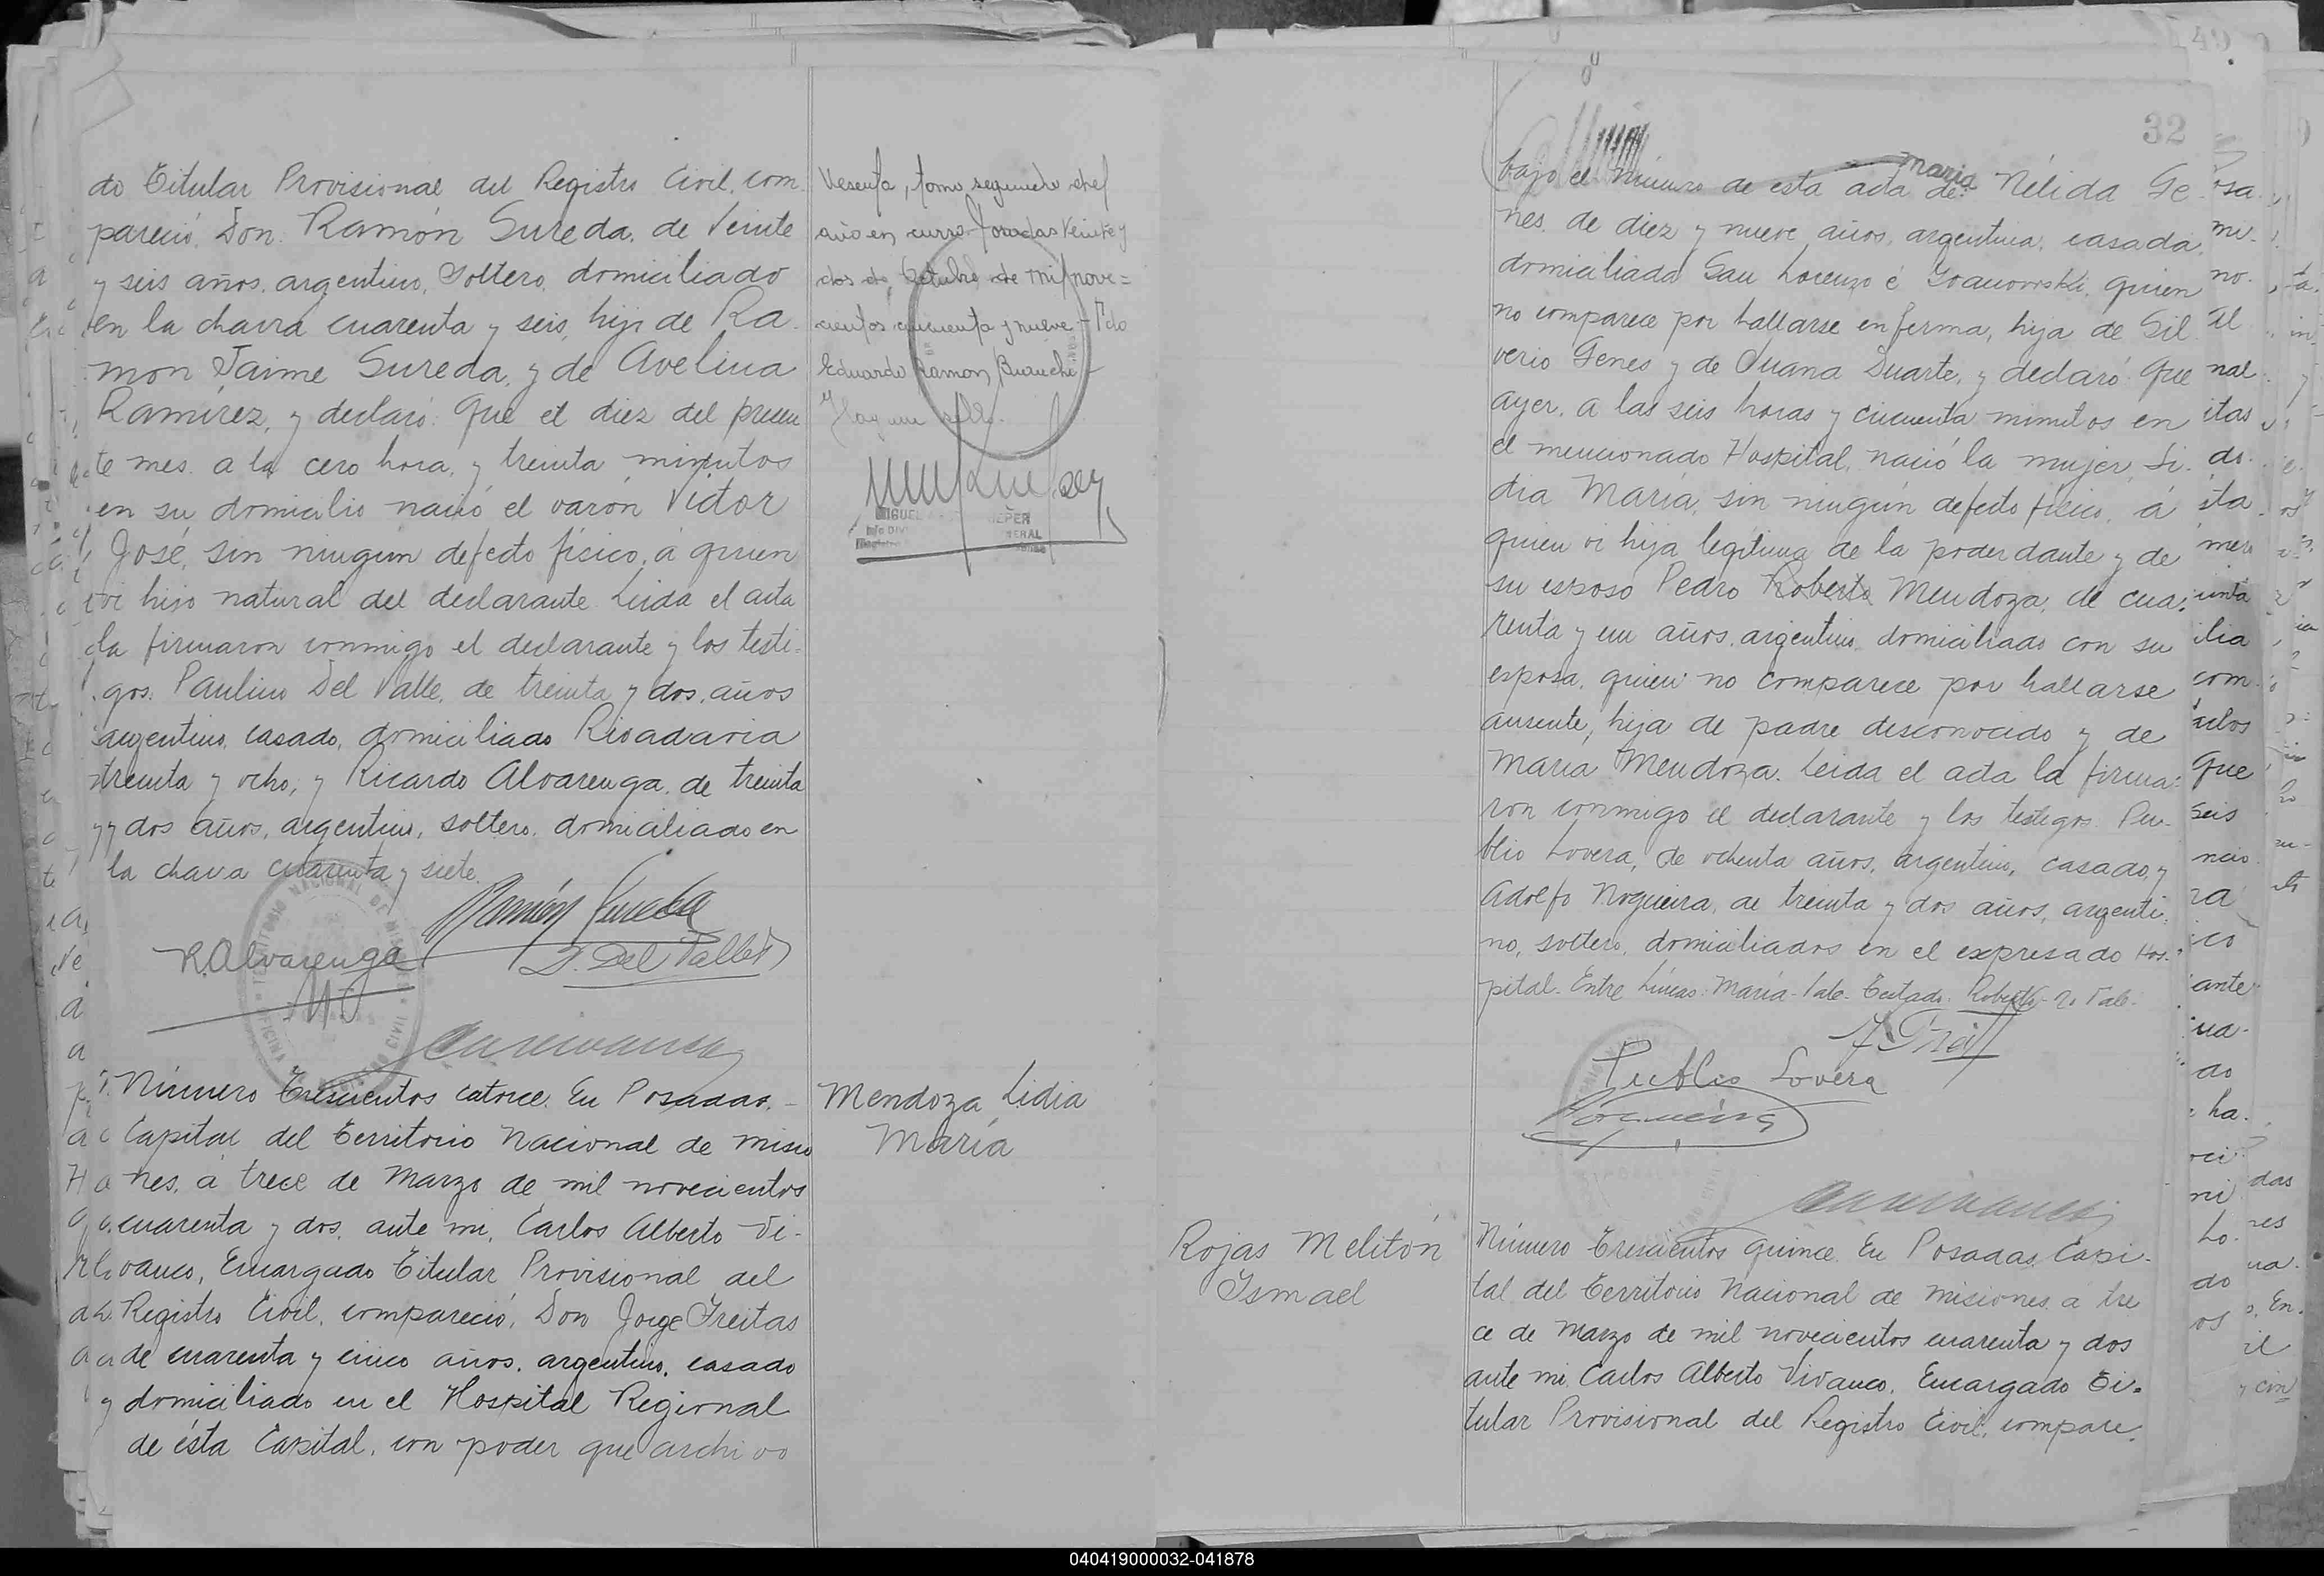 do Titular Provisional del Registro Civil, com-
pareció Don Ramón Sureda, de veinte
y seis años, argentino, soltero, domiciliado
en la chacra cuarenta y seis, hijo de Ra-
mon Jaime Sureda, y de Avelina
Ramírez, y declaró: Que el diez del presen
te mes a la cero hora, y treinta minutos
en su domicilio nació el varón Victor
José, sin ningún defecto físico, á quien
vi hijo natural del declarante. Leida el acta
la firmaron conmigo el declarante y los testi-
gos: Paulino Del Valle, de treinta y dos, años
argentino, casado, domiciliado Rivadavia
treinta y ocho, y Ricardo Alvarenga, de treinta
y dos años, argentino, soltero, domiciliado en
la chacra cuarenta y siete.
Ramón Sureda
R. Alvarenga
P. Del Valle
tomo segundo del
año en curso. Posadas veinte y
dos de Octubre de mil nove=
cientos cincuenta y nueve - Fdo
Eduardo Ramon
Hay un sello.
MIGUEL
Mendoza Lidia
María
Número Trescientos catorce. En Posadas,
Capital del Territorio Nacional de Misio
nes, á trece de Marzo de mil novecientos
cuarenta y dos, ante mi, Carlos Alberto Vi-
vanco, Encargado Titular Provisional del
Registro Civil, compareció, Don Jorge Freitas
de cuarenta y cinco años, argentino, casado
y domiciliado en el Hospital Regional
de ésta Capital, con poder que archivo
32
bajo el número de esta acta de María Nélida Ge-
nes, de diez y nueve años, argentina, casada,
domiciliada San Lorenzo é quien
no comparece por hallarse enferma, hija de Sil
verio Genes y de Juana Duarte, y declaró: Que
ayer, a las seis horas y cincuenta minutos en
el mencionado Hospital, nació la mujer, Li-
dia María, sin ningún defecto físico, á
quien vi hija legítima de la poderdante y de
su esposo Pedro Roberto Mendoza, de cua-
renta y un años, argentino, domiciliado con su
esposa, quien no comparece por hallarse
ausente, hija de padre desconocido y de
María Mendoza. Leida el acta la firma-
ron conmigo el declarante y los testigos: Pu-
blio Lovera, de ochenta años, argentino, casado, y
Adolfo Nogueira, de treinta y dos años, argenti-
no, soltero, domiciliados en el expresado Hos-
pital. Entre Líneas: María - Vale. Testado: Roberto - no Vale.
Publio Lovera
Rojas Melitón
Ismael
Número Trescientos quince. En Posadas, Capi-
tal del Territorio Nacional de Misiones, a tre
ce de Marzo de mil novecientos cuarenta y dos
ante mi Carlos Alberto Vivanco, Encargado Ti-
tular Provisional del Registro Civil, compare-
040419000032-041878